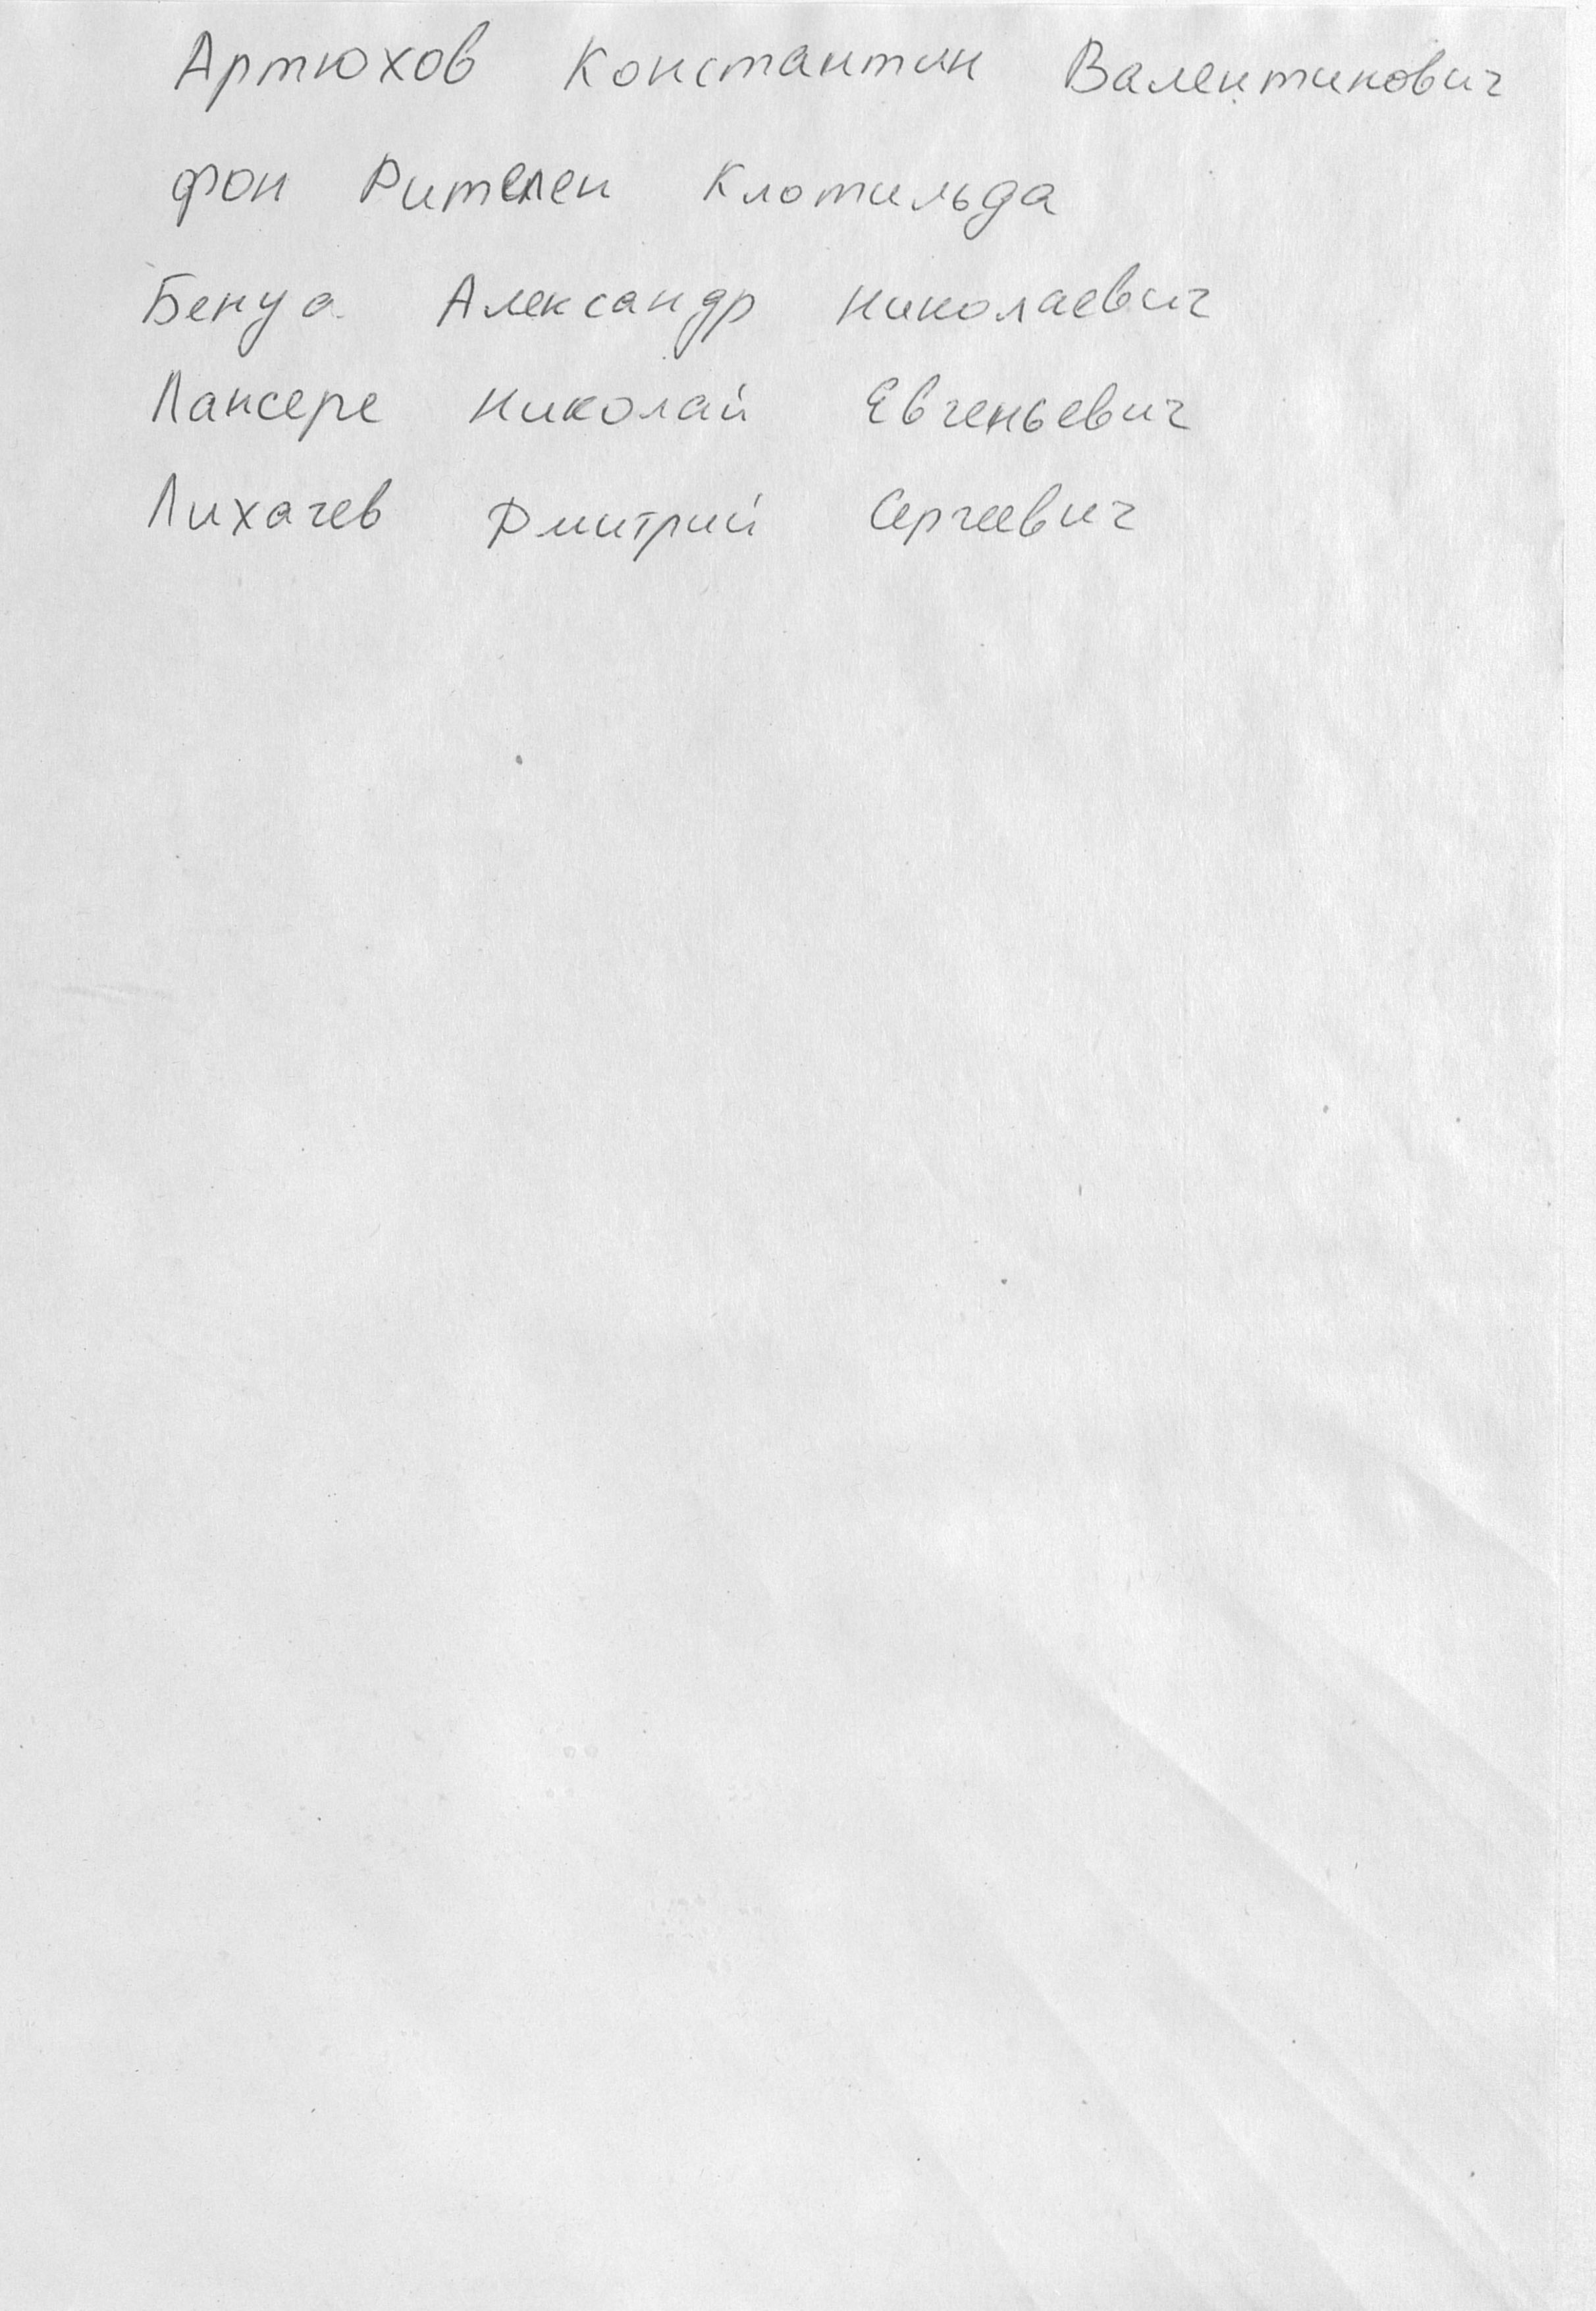 Артюхов Константин Валентинович
фон Рителен Клотильда
Бенуа Александр Николаевич
Лансере Николай Евгеньевич
Лихачев Дмитрий Сергеевич